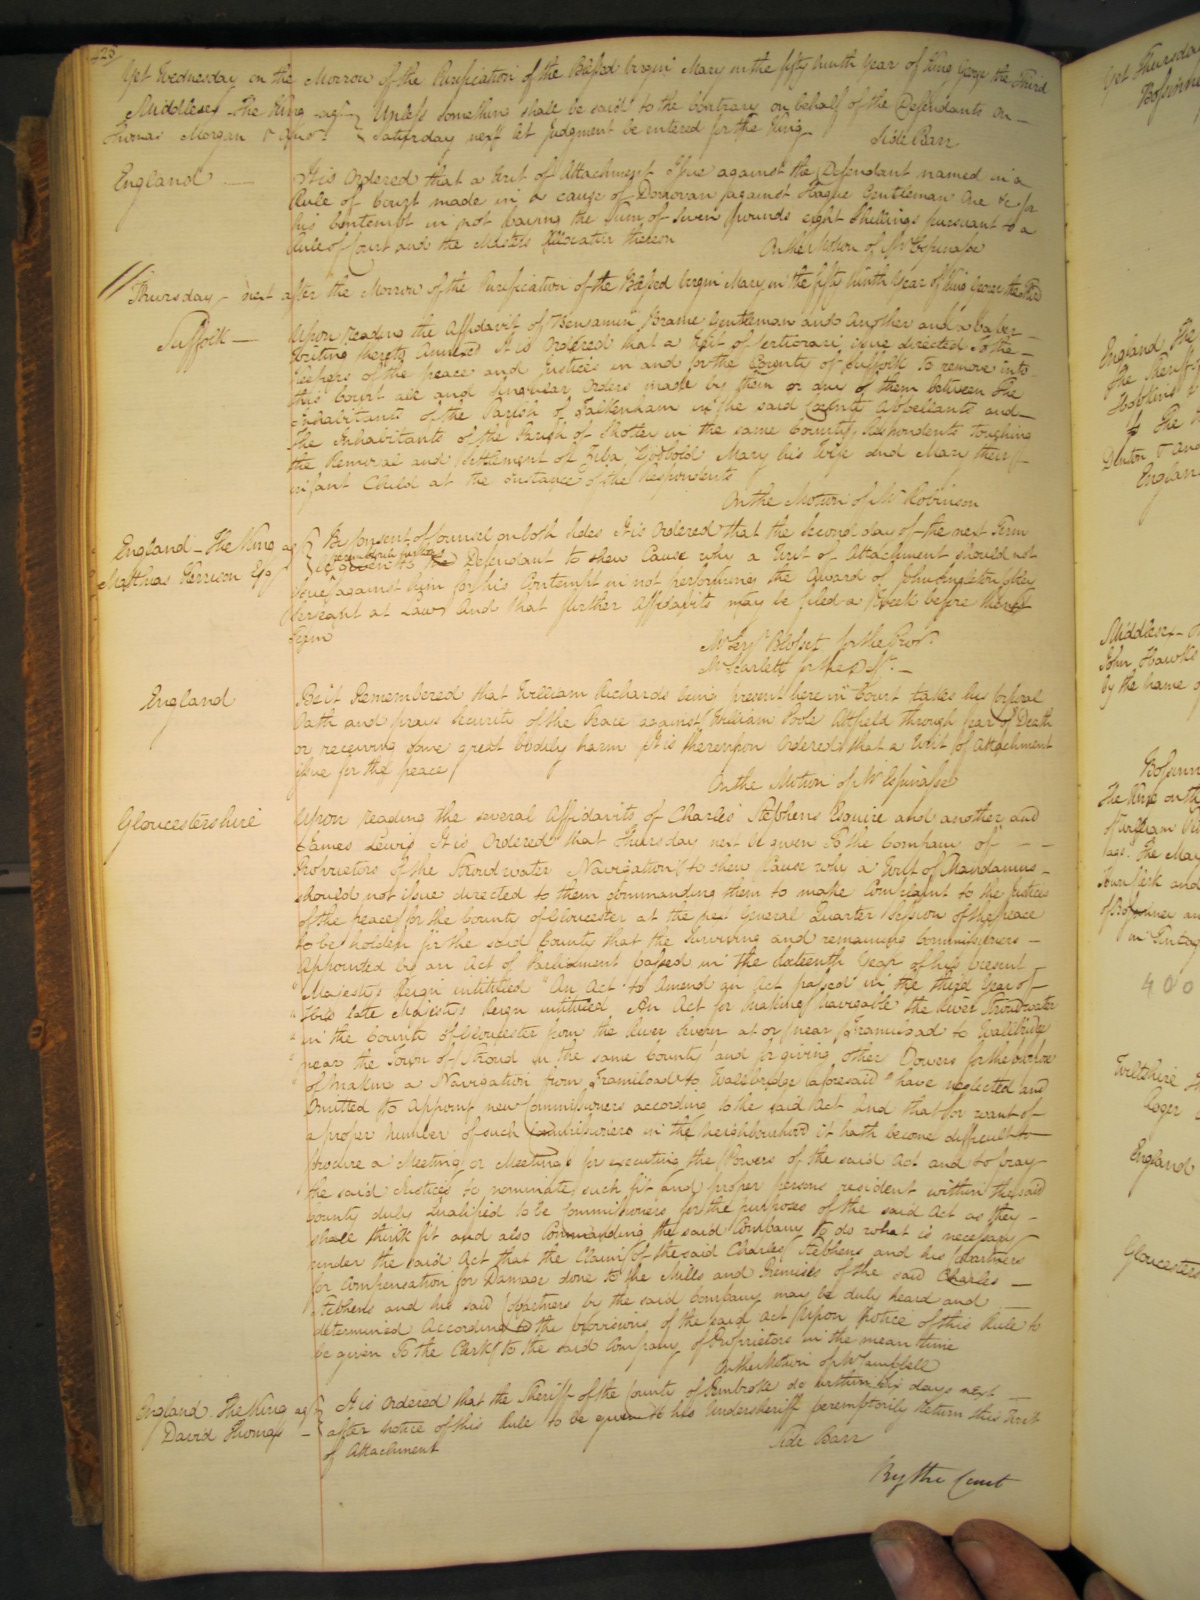 425
Yet Wednesday on the Morrow of the Purification of the Blessed Virgin Mary in the fifty ninth Year of King George the Third
Middlesex The King agt Unless something shall be said to the contrary on behalf of the Defendants on
Thomas Morgan & anor Saturday next let Judgment be entered for the King
Side Barr
England It is Ordered that a Writ of Attachment Issue against the Defendant named in a
Rule of Court made in a cause of Donovan against Hague Gentleman One &c for
his contempt in not paying the Sum of Seven pounds eight Shillings pursuant to a
Rule of Court and the Masters Allocatur thereon On the Motion of Mr Espinasse
Thursday next after the Morrow of the Purification of the Blessed Virgin Mary in the fifty ninth Year of King George the Third
Suffolk Upon reading the Affidavit of Benjamin Brame Gentleman and Another and a paper
Writing thereto Annexed It is Ordered that a Writ of Certiorari issue directed to the
Keepers of the peace and Justices in and for the County of Suffolk to remove into
this Court all and singular Orders made by them or any of them between The
Inhabitants of the Parish of Falkenham in the said County Appellants and
The Inhabitants of the Parish of Shotley in the same County Respondents touching
the Removal and Settlement of Mary his Wife and Mary their
infant Child at the instance of the Respondents
On the Motion of Mr Robinson
England The King agt By consent of Counsel on both sides It is Ordered that the second day of the next Term
Matthias Kerrison Esq be given to the Defendant to shew Cause why a Writ of Attachment should not
issue against him for his Contempt in not performing the Award of John Singleton Copley
Serjeant at Law And that further Affidavits may be filed a Week before the next
Term
Mr Serjt Blosset for the Pros.
Mr Scarlett for the Deft.
England Be it Remembered that William Richards being present here in Court takes his Corporal
Oath and prays Security of the Peace against William Poole Altfield through fear of Death
or receiving some great bodily harm It is thereupon Ordered that a Writ of Attachment
issue for the peace
On the Motion of Mr Espinasse
Gloucestershire Upon reading the several Affidavits of Charles Stephens Esquire and another and
James Lewis It is Ordered that Thursday next be given To the Company of
Proprietors of the Stroudwater Navigation to shew Cause why a Writ of Mandamus
should not issue directed to them commanding them to make Complaint to the Justices
of the peace for the County of Gloucester at the next General Quarter Session of the peace
to be holden for the said County that the Surviving and remaining Commissioners
Appointed by an Act of Parliament passed in the Sixteenth Year of his present
Majesty's Reign intituled "An Act to Amend an Act passed in the third Year of
his late Majesty's Reign intituled An Act for making navigable the River Stroudwater
in the County of Gloucester from the River Severn at or near Framiload to Wallbridge
near the Town of Stroud in the same County and for giving other Powers for the purpose
of making a Navigation from Framiload to Wallbridge aforesaid" have neglected and
Omitted to appoint new Commissioners according to the said Act And that for want of
a proper number of such Commissioners in the Neighbourhood it hath become difficult to
procure a Meeting or Meetings for executing the Powers of the said Act and to pray
the said Justices to nominate such fit and proper persons resident within the said
County duly Qualified to be Commissioners for the purposes of the said Act as they
shall think fit and also Commanding the said Company to do what is necessary
under the said Act that the Claim of the said Charles Stephens and his Copartners
for Compensation for Damage done to the Mills and Premises of the said Charles
Stephens and his said Copartners by the said Company may be duly heard and
determined According to the provisions of the said Act Upon Notice of this Rule to
be given To the Clerk to the said Company of Proprietors in the mean time
On the Motion of Mr Campbell
England The King agt It is Ordered that the Sheriff of the County of Pembroke do within six days next
David Thomas after notice of this Rule to be given to his Undersheriff peremptorily return this Writ
of Attachment Side Barr
By the Court
Yet Thursday
England The
the Sheriff
Middlesex
John Hawk
by the name of
400
Wiltshire
Roger
England
Gloucesters